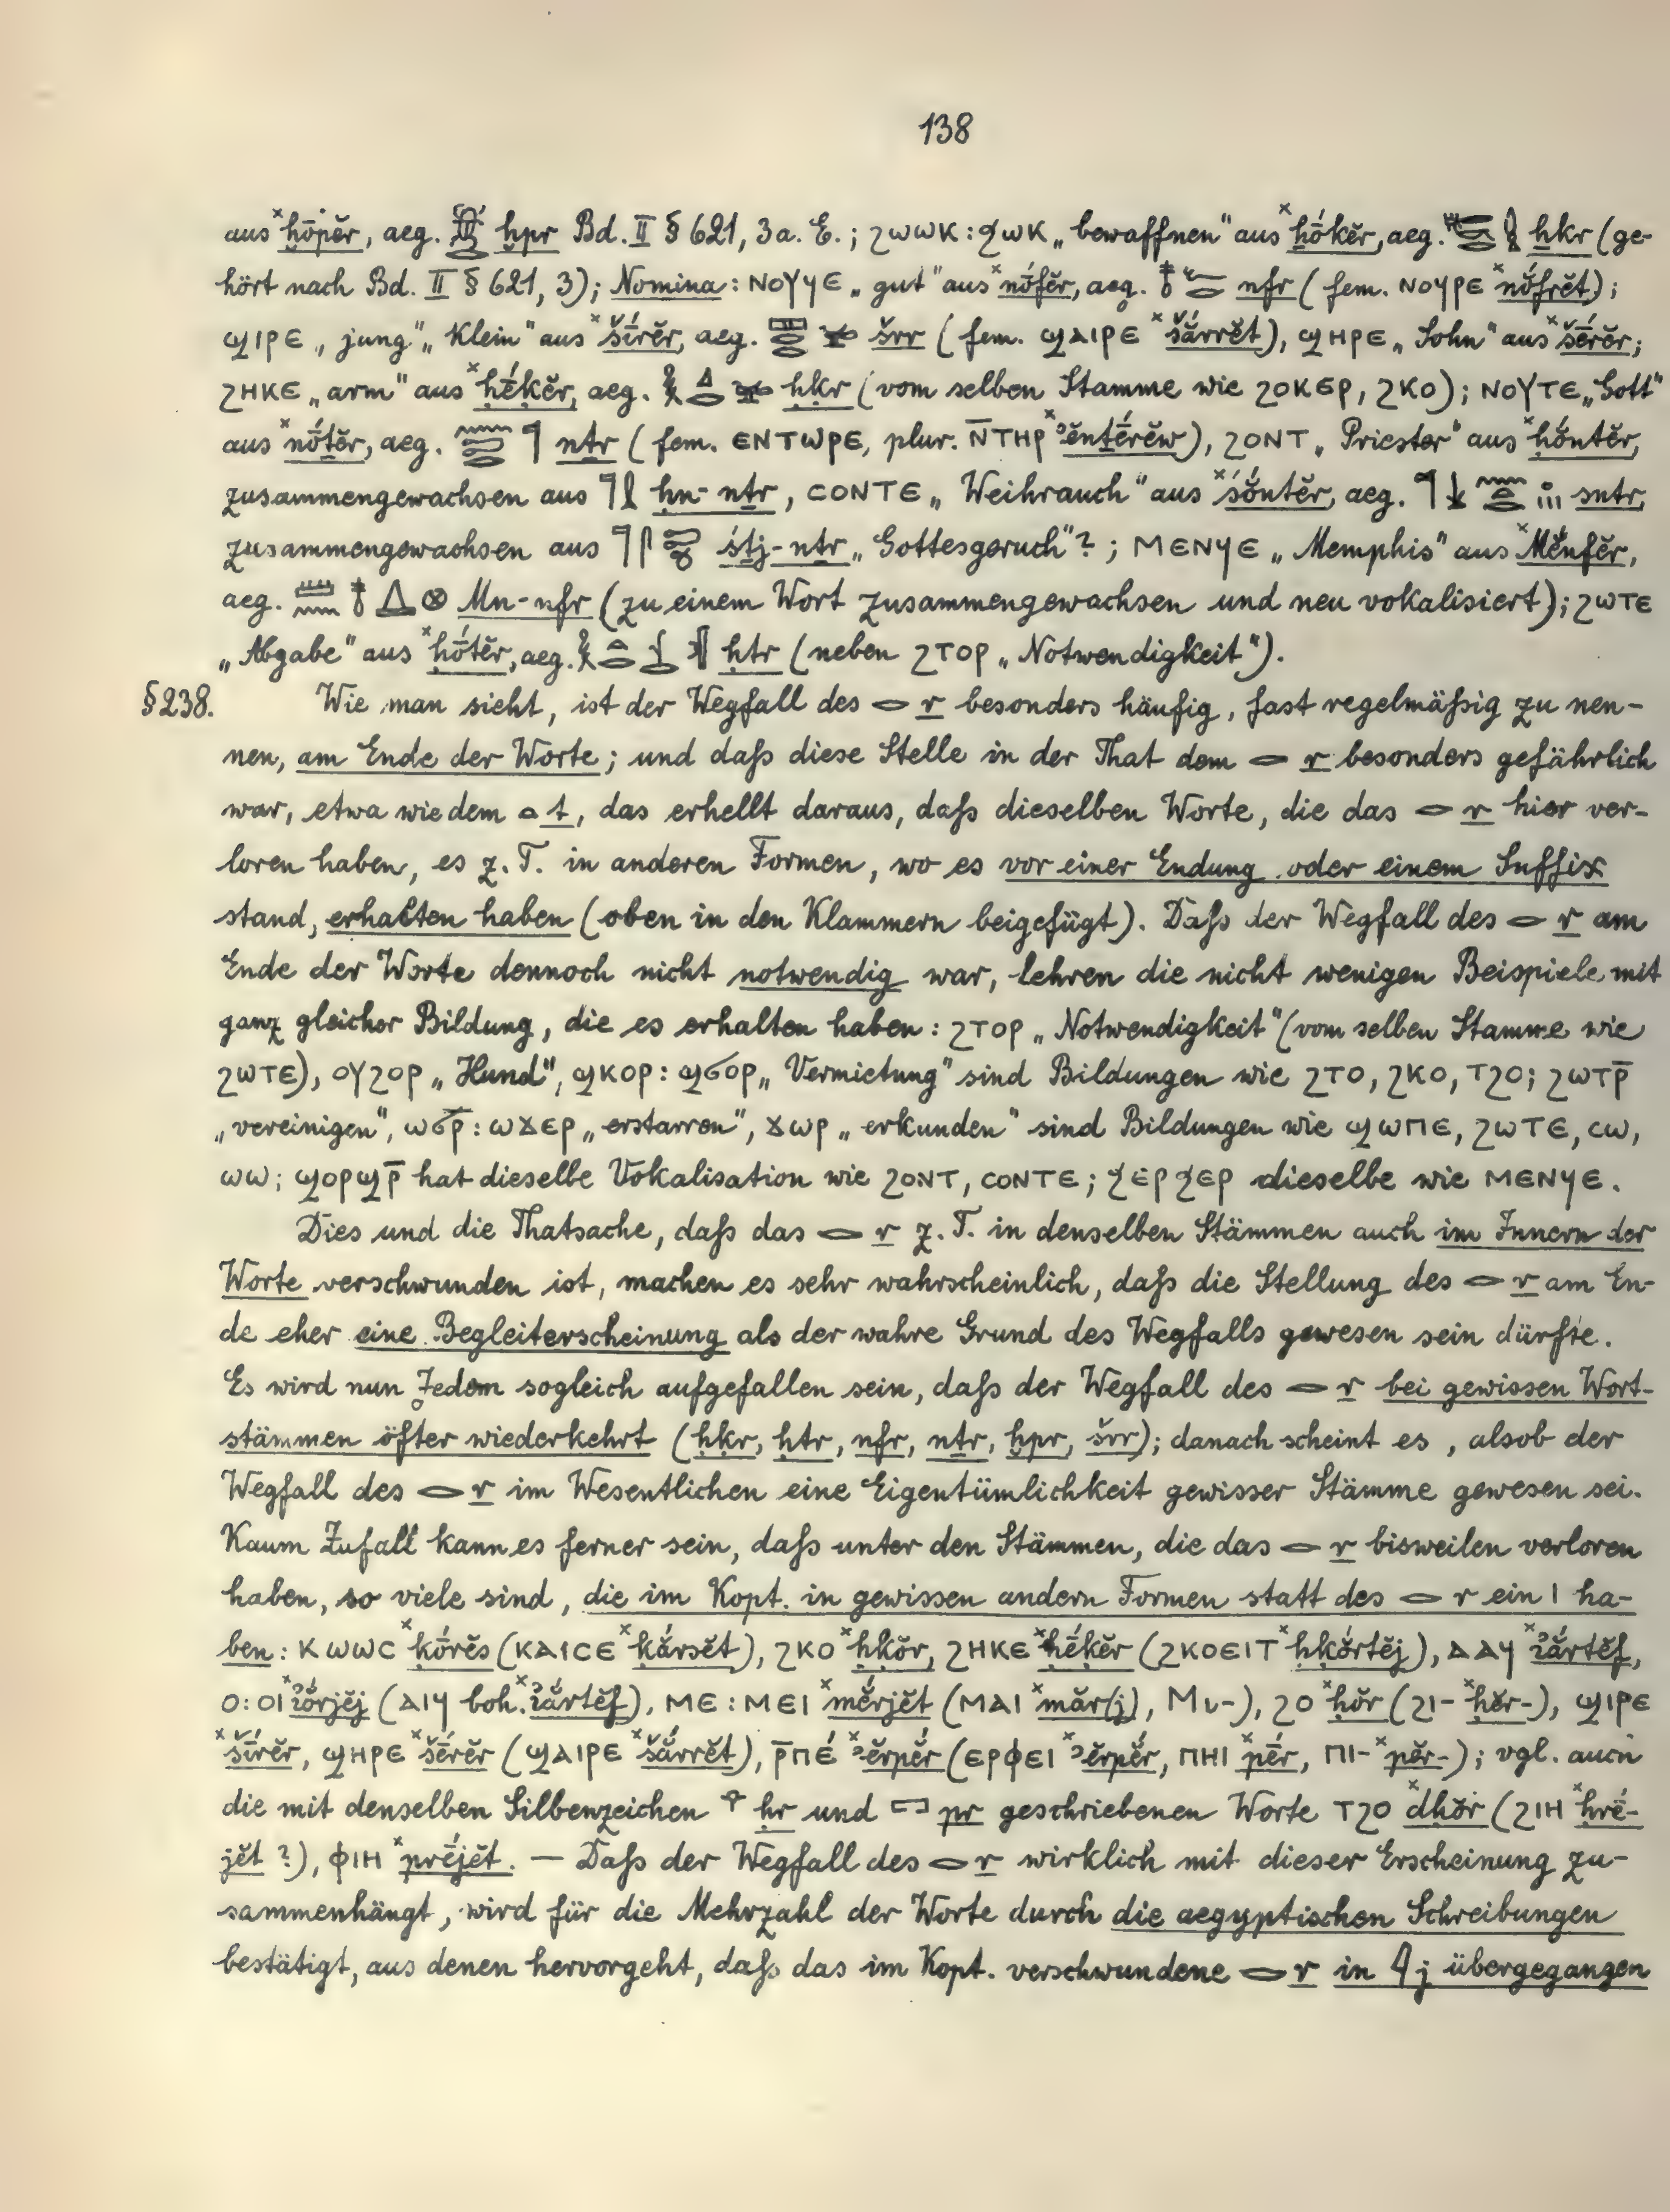 138
aus ˣḫōpĕr, aeg. 𓆣𓂋 ḫpr Bd. II § 621, 3a. E.; ϩⲱⲱⲕ : ϧⲱⲕ „bewaffnen“ aus ˣḫókĕr, aeg. ẖkr (ge-
hört nach Bd. II § 621, 3); Nomina: ⲛⲟⲩϥⲉ „gut“ aus ˣnṓfĕr, aeg. 𓄤𓆑𓂋 nfr (fem. ⲛⲟϥⲣⲉ ˣnŏ́frĕt);
ϣⲓⲣⲉ „jung“ „klein“ aus ˣšī́rĕr, aeg. 𓈙𓂋𓂋𓅪 šrr (fem. ϣⲁⲓⲣⲉ ˣšắrrĕt), ϣⲏⲣⲉ „Sohn“ aus ˣšḗrĕr;
ϩⲏⲕⲉ „arm“ aus ˣḥḗḳĕr, aeg. 𓎛𓈎𓂋𓅪 ḥḳr (vom selben Stamme wie ϩⲟⲕⲉⲣ, ϩⲕⲟ); ⲛⲟⲩⲧⲉ „Gott“
aus ˣnṓṯĕr, aeg. 𓈖𓍿𓂋𓊹 nṯr (fem. ⲉⲛⲧⲱⲣⲉ, plur. ⲛ̄ⲧⲏⲣ ˣꜣĕnṯḗrĕw), ϩⲟⲛⲧ „Priester“ aus ˣḥŏ́nṯĕr,
zusammengewachsen aus 𓊹𓍛 ḥn-nṯr, ⲥⲟⲛⲧⲉ „Weihrauch“ aus ˣśŏ́nṯĕr, aeg. sntr,
zusammengewachsen aus śṯj-nṯr „Gottesgeruch“?; ⲙⲉⲛϥⲉ „Memphis“ aus ˣMĕ́nfĕr,
aeg. 𓏠𓈖𓄤𓉴𓊖 Mn-nfr (zu einem Wort zusammengewachsen und neu vokalisiert); ϩⲱⲧⲉ
„Abgabe“ aus ˣḥṓtĕr, aeg. ḥtr (neben ϩⲧⲟⲣ „Notwendigkeit“).
§ 238. Wie man sieht, ist der Wegfall des 𓂋 r besonders häufig, fast regelmäßig zu nen-
nen, am Ende der Worte; und daß diese Stelle in der That dem 𓂋 r besonders gefährlich
war, etwa wie dem 𓏏 t, das erhellt daraus, daß dieselben Worte, die das 𓂋 r hier ver-
loren haben, es z. T. in anderen Formen, wo es vor einer Endung oder einem Suffix
stand, erhalten haben (oben in den Klammern beigefügt). Daß der Wegfall des 𓂋 r am
Ende der Worte dennoch nicht notwendig war, lehren die nicht wenigen Beispiele mit
ganz gleicher Bildung, die es erhalten haben: ϩⲧⲟⲣ „Notwendigkeit“ (vom selben Stamme wie
ϩⲱⲧⲉ), ⲟⲩϩⲟⲣ „Hund“, ϣⲕⲟⲣ : ϣϭⲟⲣ „Vermietung“ sind Bildungen wie ϩⲧⲟ, ϩⲕⲟ, ⲧϩⲟ; ϩⲱⲧⲣ̄
„vereinigen“, ⲱϭⲣ̄ : ⲱϫⲉⲣ „erstarren“, ϫⲱⲣ „erkunden“ sind Bildungen wie ϣⲱⲡⲉ, ϩⲱⲧⲉ, ⲥⲱ,
ⲱⲱ; ϣⲟⲣϣⲣ̄ hat dieselbe Vokalisation wie ϩⲟⲛⲧ, ⲥⲟⲛⲧⲉ; ϧⲉⲣϧⲉⲣ dieselbe wie ⲙⲉⲛϥⲉ.
Dies und die Thatsache, daß das 𓂋 r z. T. in denselben Stämmen auch im Innern der
Worte verschwunden ist, machen es sehr wahrscheinlich, daß die Stellung des 𓂋 r am En-
de eher eine Begleiterscheinung als der wahre Grund des Wegfalls gewesen sein dürfte.
Es wird nun Jedem sogleich aufgefallen sein, daß der Wegfall des 𓂋 r bei gewissen Wort-
stämmen öfter wiederkehrt (ḥḳr, ḥtr, nfr, nṯr, ḫpr, šrr); danach scheint es, alsob der
Wegfall des 𓂋 r im Wesentlichen eine Eigentümlichkeit gewisser Stämme gewesen sei.
Kaum Zufall kann es ferner sein, daß unter den Stämmen, die das 𓂋 r bisweilen verloren
haben, so viele sind, die im Kopt. in gewissen andern Formen statt des 𓂋 r ein ⲓ ha-
ben: ⲕⲱⲱⲥ ˣḳṓrĕs (ⲕⲁⲓⲥⲉ ˣḳắrsĕt), ϩⲕⲟ ˣḥḳŏ́r, ϩⲏⲕⲉ ˣḥḗḳĕr (ϩⲕⲟⲉⲓⲧ ˣḥḳŏ́rtĕj), ⲁⲁϥ ˣꜣĭắrtĕf,
ⲟ : ⲟⲓ ˣꜣĭŏ́rjĕj (ⲁⲓϥ boh. ˣꜣĭắrtĕf), ⲙⲉ : ⲙⲉⲓ ˣmĕ́rjĕt (ⲙⲁⲓ ˣmăr(j), Μι-), ϩⲟ ˣḥŏr (ϩⲓ- ˣḥĕr-), ϣⲓⲣⲉ
ˣšī́rĕr, ϣⲏⲣⲉ ˣšḗrĕr (ϣⲁⲓⲣⲉ ˣšắrrĕt), ⲣ̄ⲡⲉ́ ˣꜣĕrpĕ́r (ⲉⲣⲫⲉⲓ ˣꜣĕrpĕ́r, ⲡⲏⲓ ˣpḗr, ⲡⲓ- ˣpĕr-); vgl. auch
die mit denselben Silbenzeichen 𓁷 ḥr und 𓉐 pr geschriebenen Worte ⲧϩⲟ ˣdhŏ́r (ϩⲓⲏ ˣḥrḗ-
jĕt ?), ⲫⲓⲏ ˣprḗjĕt. — Daß der Wegfall des 𓂋 r wirklich mit dieser Erscheinung zu-
sammenhängt, wird für die Mehrzahl der Worte durch die aegyptischen Schreibungen
bestätigt, aus denen hervorgeht, daß das im Kopt. verschwundene 𓂋 r in 𓇋 j übergegangen